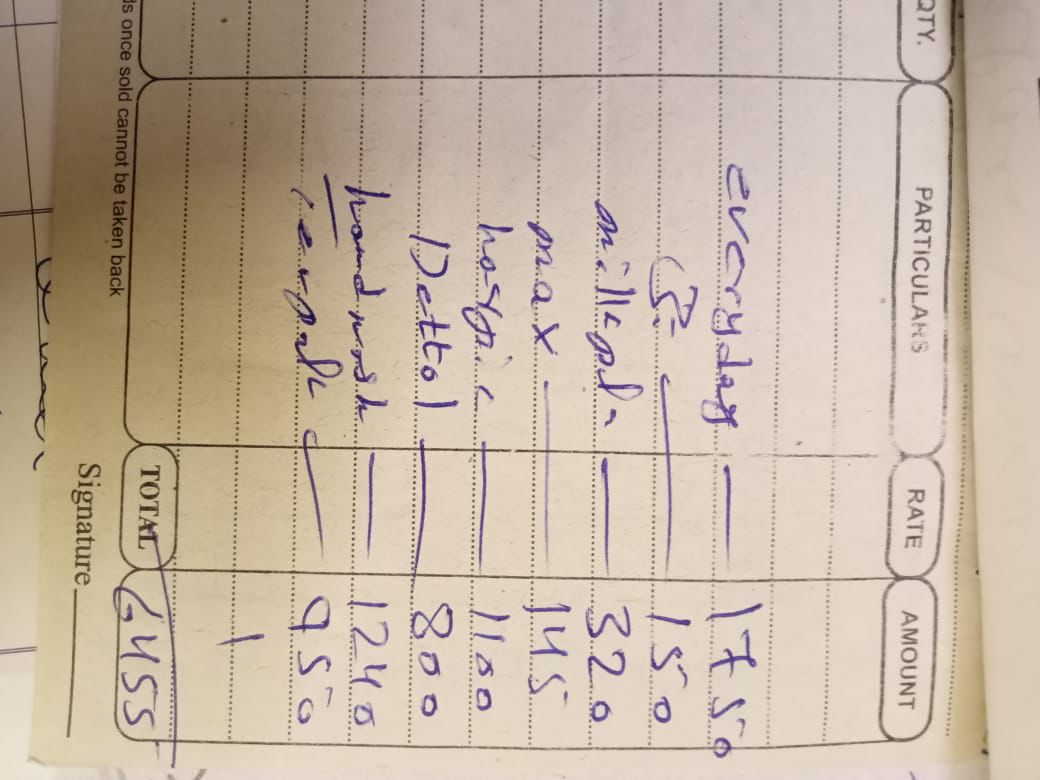 QTY. PARTICULARS RATE AMOUNT
everyday — 1750
— 150
— 320
max — 145
harpic — 1100
Dettol — 800
handwash — 1240
— 950
TOTAL 6455
ds once sold cannot be taken back
Signature